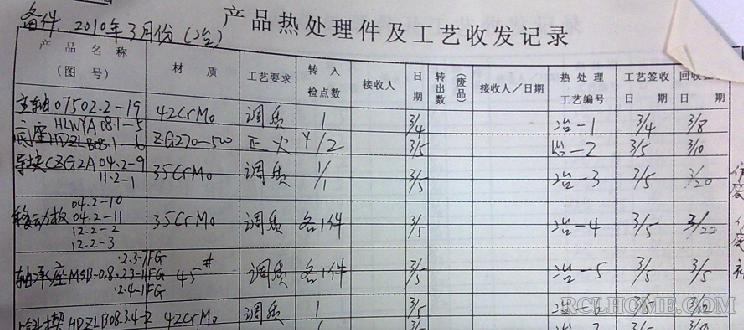 备件 2010年3月份(冶) 产品热处理件及工艺收发记录
产品名称 材质 工艺要求 转入 接收人 日 转出数 (废品) 接收人/日期 热处理 工艺签收 回收
(图号) 检点数 期 工艺编号 日期 日期
主轴01502.2-19 42CrMo 调质 1 3/4 冶-1 3/4 3/8
底座HLWYA08.1-5 ZG270-500 正火 1/2 3/5 冶-2 3/5 3/10
HDZLB08.1-6
导块CZG2A04.2-9 35CrMo 调质 1/1 3/5 冶-3 3/5 3/20
11.2-1
04.2-10
移动板04.2-11 35CrMo 调质 各1件 3/5 冶-4 3/5 3/22
12.2-2
12.2-3
2.3-1FG
轴承座MSB-0.8.2.3-1FG 45# 调质 各1件 3/5 冶-5 3/5 3/5
2.4-1FG
HDZLB08.3.4-2 42CrMo 调质 1 3/5
RCLHOME.COM